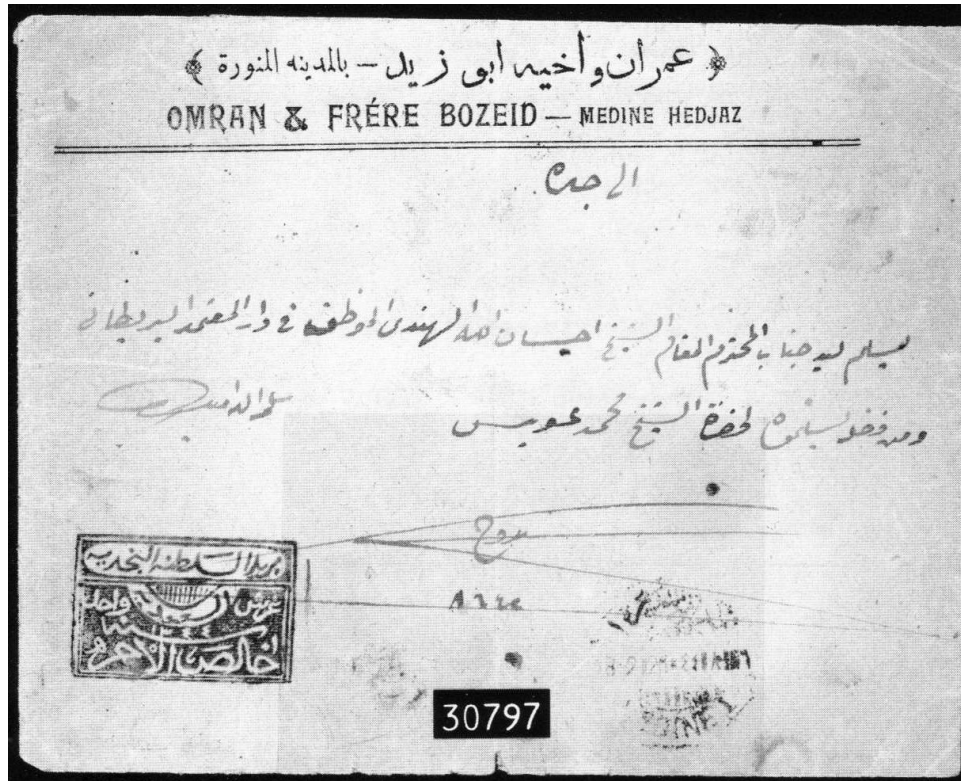 عمران وأخيه ابو زيد — بالمدينه المنورة
OMRAN & FRÉRE BOZEID — MEDINE HEDJAZ
الى جده
يسلم ليد جناب المحترم المقام الشيخ احسان الله الهندى الموظف فى دار المعتمد البريطانى
ومن فضله يسلموه لحضرة الشيخ محمد عويس
بريد السلطنه النجديه
غرش السعوديه واحد
١٣٤٤
خالص الأجره
30797